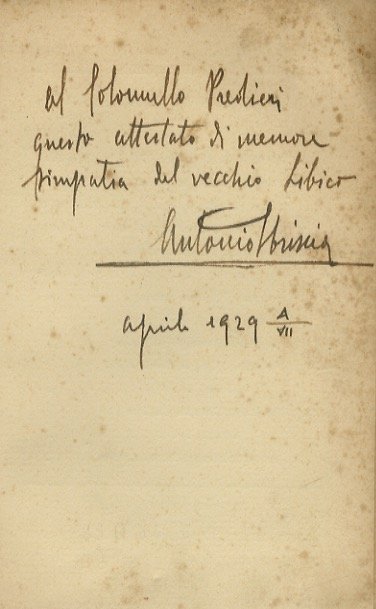 al Colonnello Predieri
questo attestato di memore
simpatia del vecchio Libico
Antonio
aprile 1929 A/VII